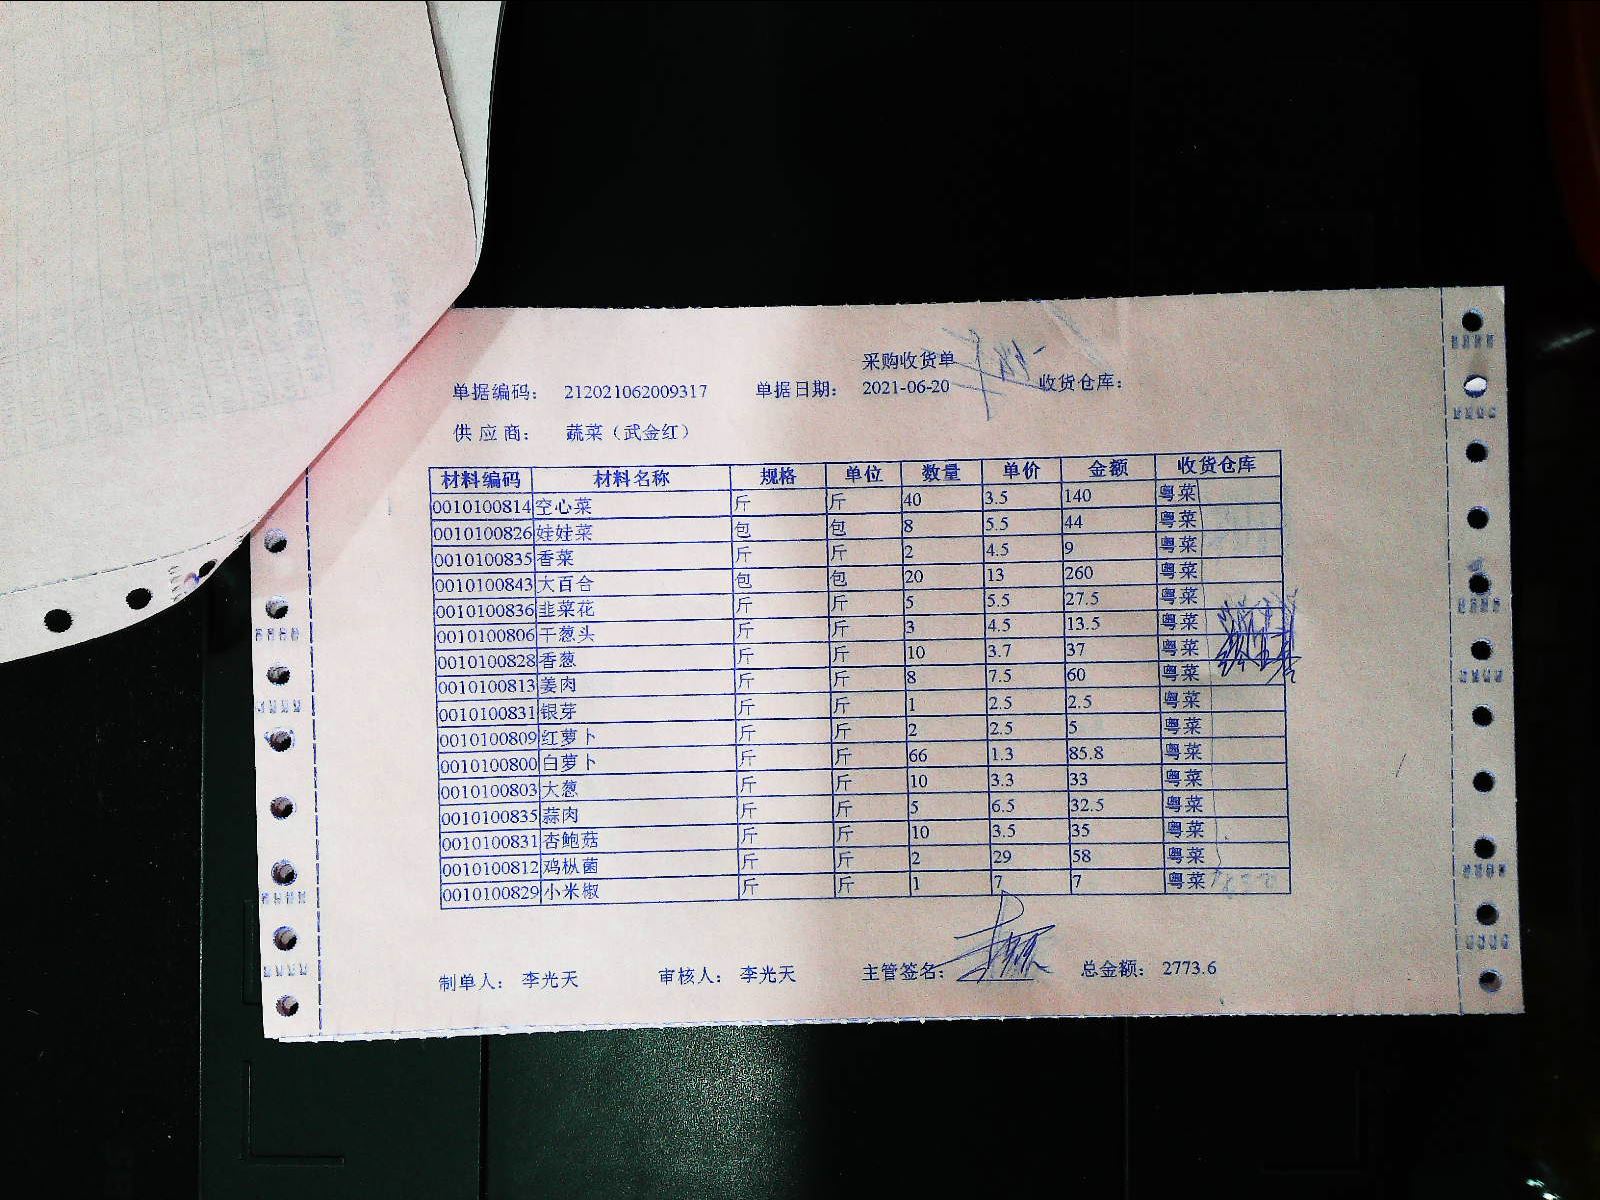 采购收货单
单据编码： 212021062009317 单据日期： 2021-06-20 收货仓库：
供应商： 蔬菜（武金红）
材料编码 材料名称 规格 单位 数量 单价 金额 收货仓库
0010100814 空心菜 斤 斤 40 3.5 140 粤菜
0010100826 娃娃菜 包 包 8 5.5 44 粤菜
0010100835 香菜 斤 斤 2 4.5 9 粤菜
0010100843 大百合 包 包 20 13 260 粤菜
0010100836 韭菜花 斤 斤 5 5.5 27.5 粤菜
0010100806 干葱头 斤 斤 3 4.5 13.5 粤菜
0010100828 香葱 斤 斤 10 3.7 37 粤菜
0010100813 姜肉 斤 斤 8 7.5 60 粤菜
0010100831 银芽 斤 斤 1 2.5 2.5 粤菜
0010100809 红萝卜 斤 斤 2 2.5 5 粤菜
0010100800 白萝卜 斤 斤 66 1.3 85.8 粤菜
0010100803 大葱 斤 斤 10 3.3 33 粤菜
0010100835 蒜肉 斤 斤 5 6.5 32.5 粤菜
0010100831 杏鲍菇 斤 斤 10 3.5 35 粤菜
0010100812 鸡枞菌 斤 斤 2 29 58 粤菜
0010100829 小米椒 斤 斤 1 7 7 粤菜
制单人： 李光天 审核人： 李光天 主管签名： 总金额： 2773.6